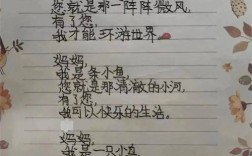 您就是那一阵阵微风，
有了您，
我才能环游世界。
妈妈，
我是条小鱼，
您就是那清澈的小河，
有了您，
我可以快乐的生活。
妈妈，
我是一只小鸟，